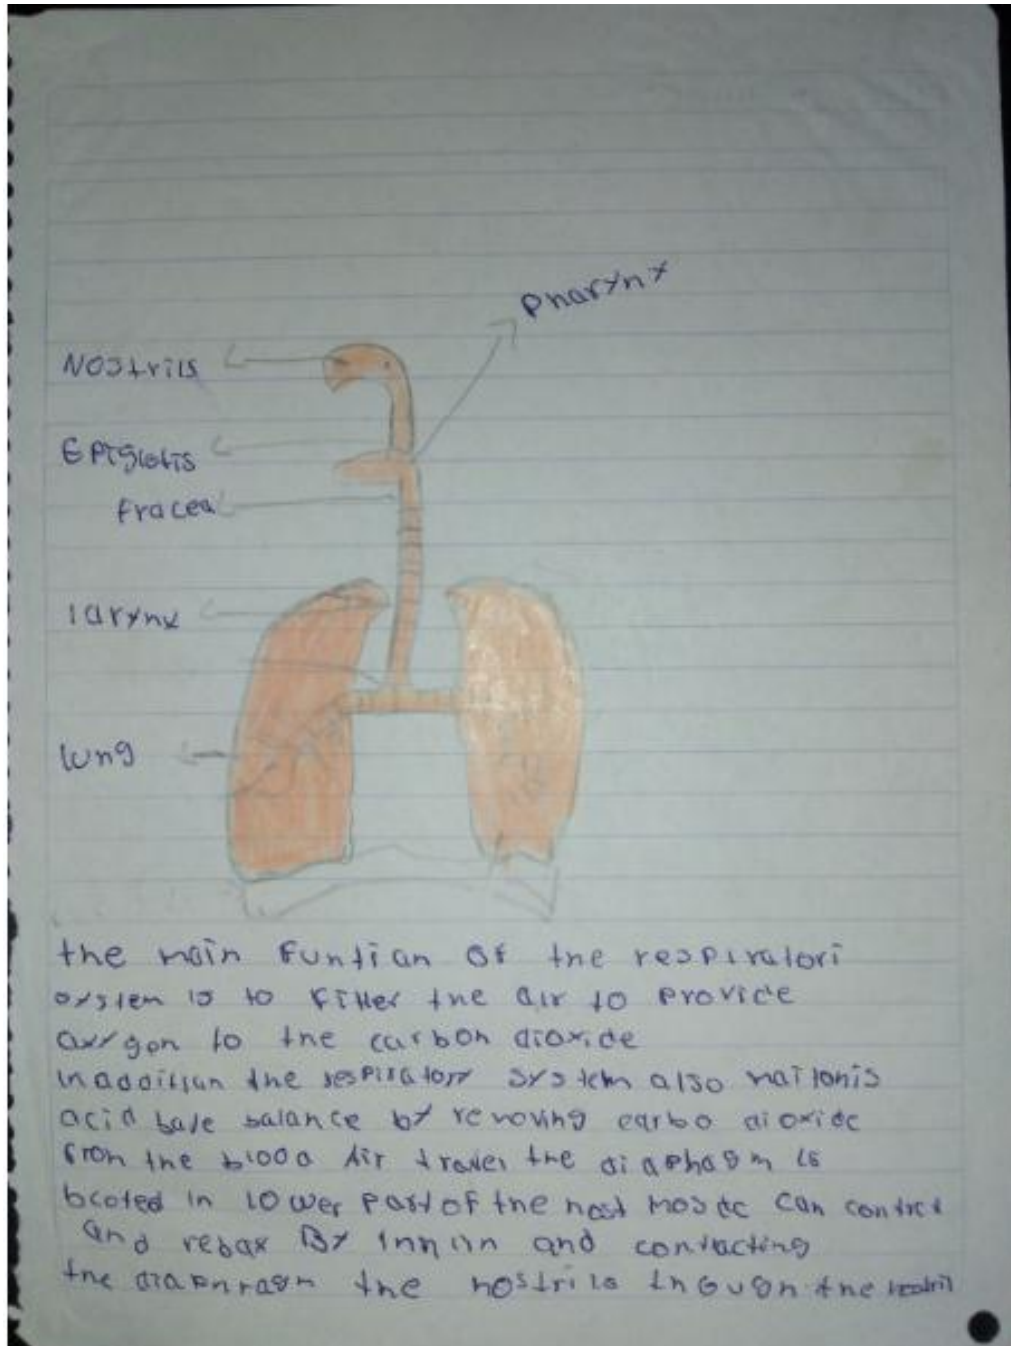 Pharynx
Nostrils
Epiglotis
fracea
larynx
lung
the main funtian of the respiratori
system is to filter the air to provide
oxygon to the carbon dioxide
in addition the respiratory system also
acid base balance by removing carbo dioxide
from the blood Air travel the diaphagm is
in lower part of the can
and relax By and contacting
the diaphragm the nostrils through the